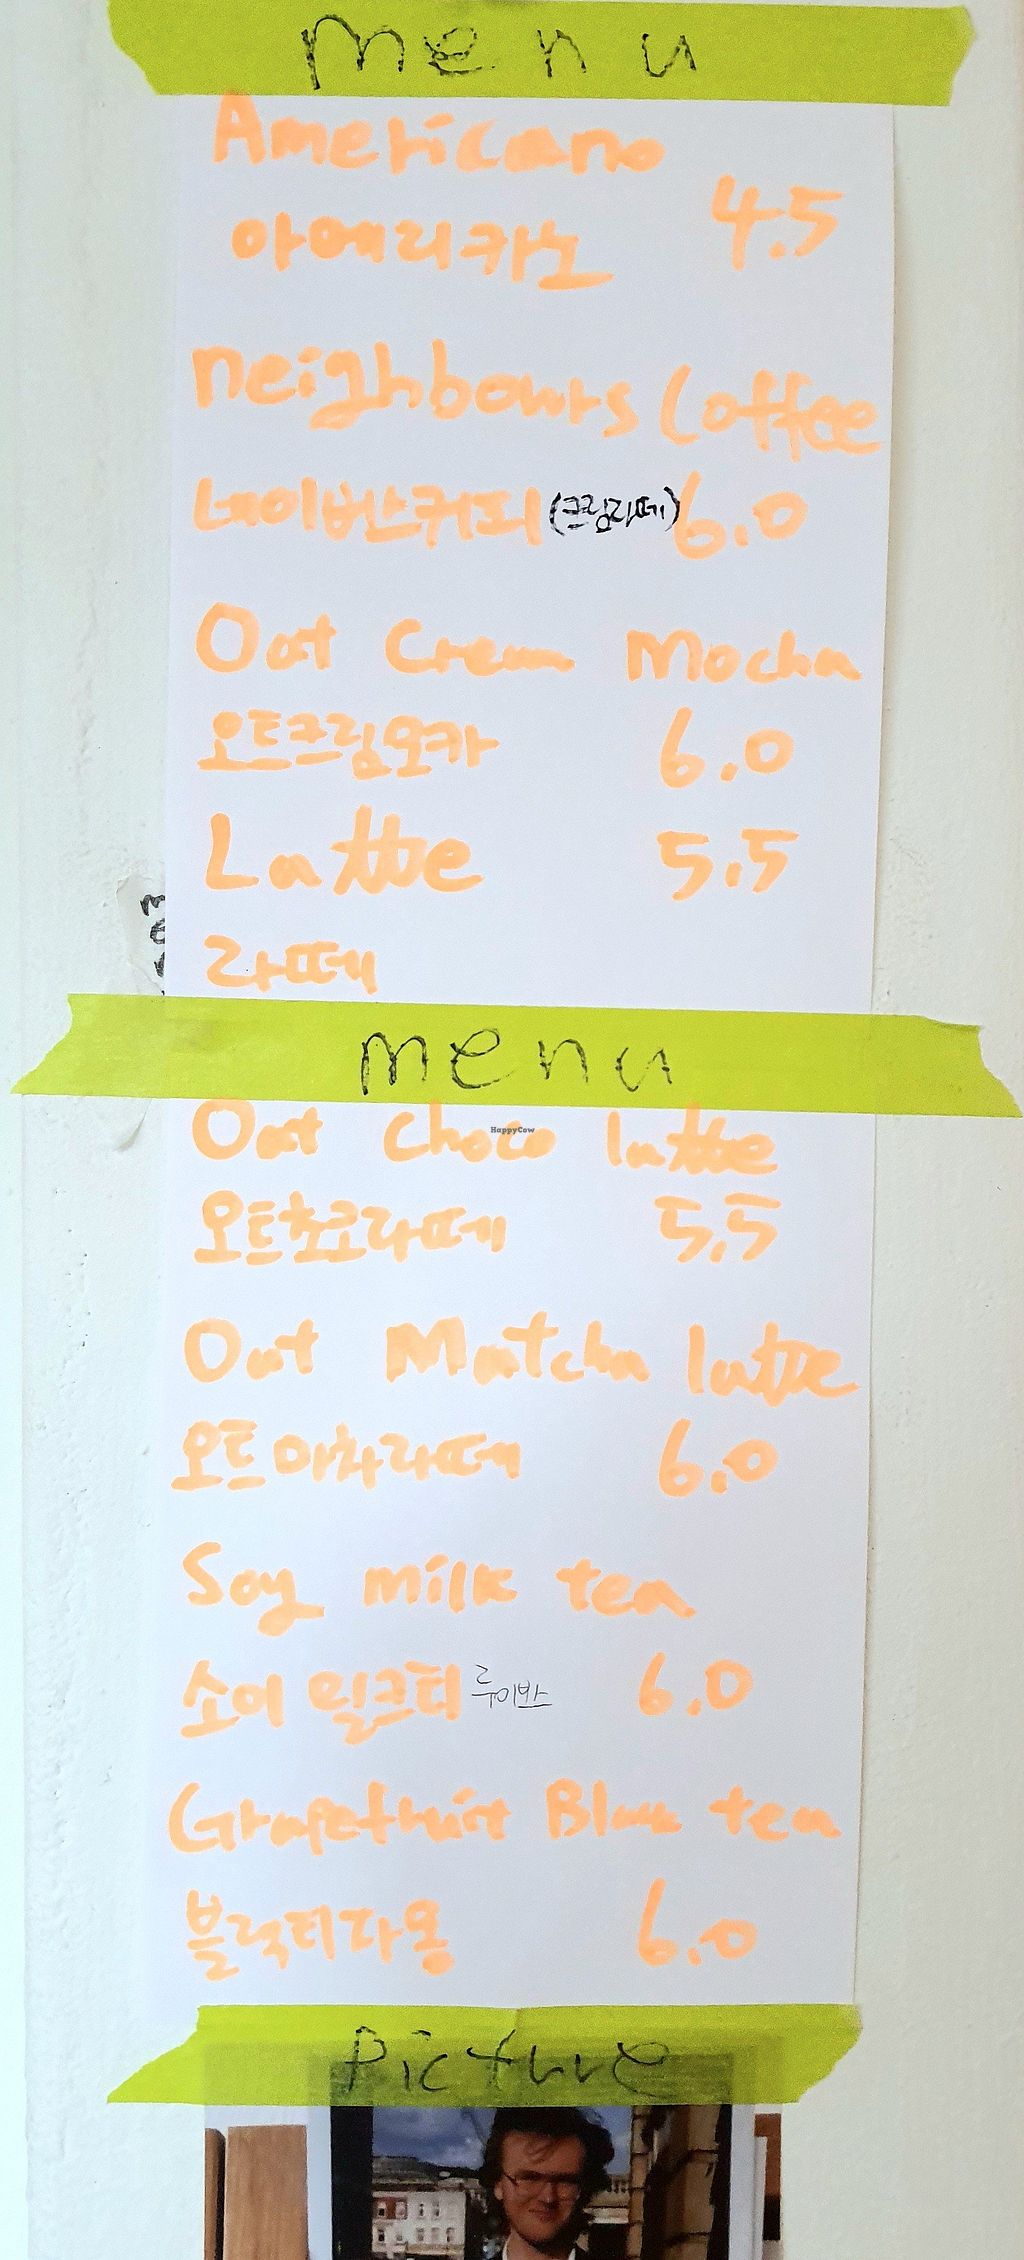 menu
Americano
아메리카노 4.5
neighbours Coffee
네이버스커피 (크림라떼) 6.0
Oat Cream Mocha
오트크림모카 6.0
Latte 5.5
라떼
menu
Oat Choco latte
HappyCow
오트초코라떼 5.5
Oat Matcha latte
오트마차라떼 6.0
Soy milk tea
소이 밀크티 루이반스 6.0
Grapefruit Black tea
블랙티자몽 6.0
Picture